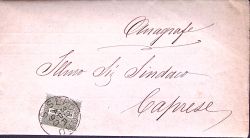 Anagrafe
Illmo Sig Sindaco
Caprese